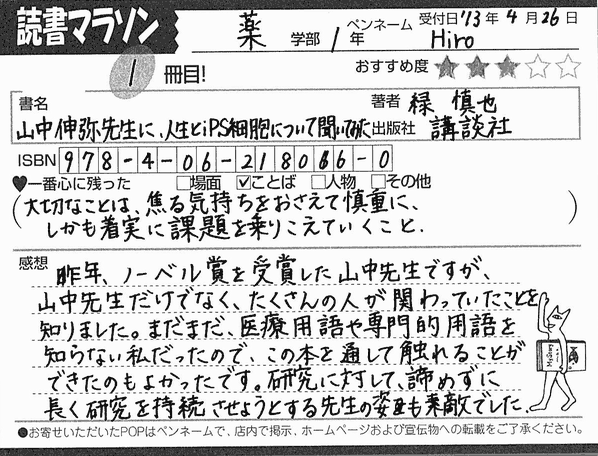 読書マラソン
薬 学部 1年 ペンネーム Hiro 受付日'13年4月26日
1 冊目!
おすすめ度 ★★★☆☆
書名 山中伸弥先生に、人生とiPS細胞について聞いてみた
著者 緑 慎也
出版社 講談社
ISBN 978-4-06-218066-0
♥一番心に残った □場面 ☑ことば □人物 □その他
(大切なことは、焦る気持ちをおさえて慎重に、
しかも着実に課題を乗りこえていくこと.)
感想 昨年、ノーベル賞を受賞した山中先生ですが、
山中先生だけでなく、たくさんの人が関わっていたことを
知りました。まだまだ、医療用語や専門的用語を
知らない私だったので、この本を通して触れることが
できたのもよかったです。研究に対して、諦めずに
長く研究を持続させようとする先生の姿も素敵でした.
●お寄せいただいたPOPはペンネームで、店内で掲示、ホームページおよび宣伝物への転載をご了承ください。